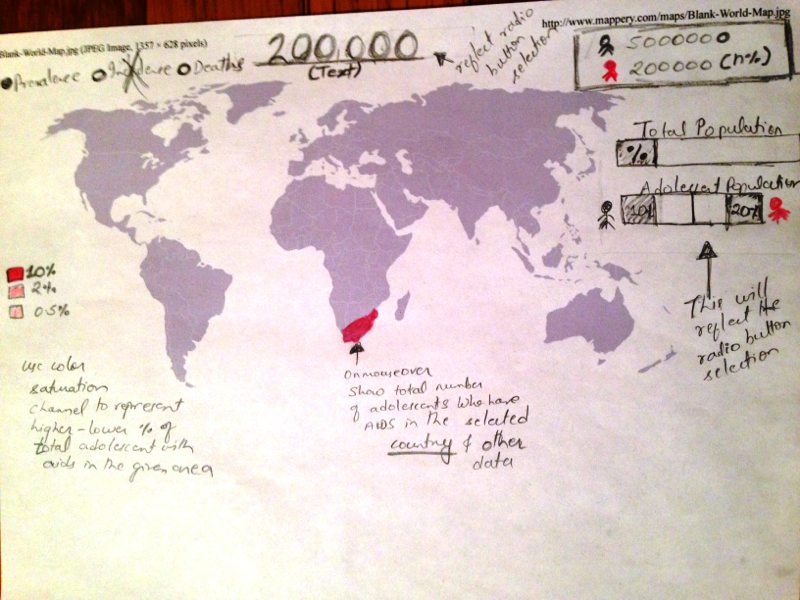 Blank-World-Map.jpg (JPEG Image, 1357 × 628 pixels)
http://www.mappery.com/maps/Blank-World-Map.jpg
Prevalence Incidence Deaths
200,000
(Text)
reflect radio
button
selection
5000000
200000 (n%)
Total Population
%
Adolescent Population
10% 20%
This will
reflect the
radio button
selection
10%
2%
0.5%
use color
saturation
channel to represent
higher-lower % of
total adolescent with
aids in the given area
onmouseover
Show total number
of adolescents who have
AIDS in the selected
country & other
data